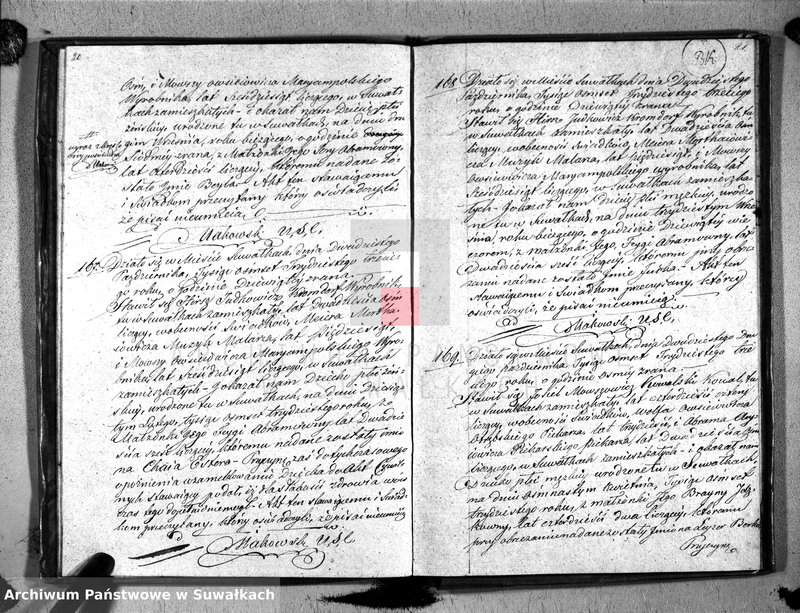 20
Ośm, i Mowszy Owsiejowicza Maryampolskiego
Wyrobnika, lat Sześdziesiąt liczącego, w Suwał
kach zamieszkałych - i okazał nam Dziecię płci
żeńskiej, urodzone tu w Suwałkach, na dniu dru
gim Września, roku bieżącego, o godzinie
Siódmej zrana, z Małżonki Jego Sory Abramowny,
lat czterdzieści liczącej, któremu nadane zo
stało Imie Beyla - Akt ten stawaiącemu
i Świadkom przeczytany który oświadczyli
że pisać nieumieią
Makowski U.S.C.
167. Działo się w Mieście Suwałkach dnia Dwudziestego
Października, Tysiąc ośmset Trzydziestego trzecie
go roku, o godzinie Dziewiątey zrana
Stawił się Hersz Judkowicz Kronsdorf Wyrobnik,
tu w Suwałkach zamieszkały, lat Dwadzieścia ośm
liczący, w obecności Świadków, Meiera Mortha
iowicza Muzyk Malarza, lat Pięćdziesiąt,
i Mowszy Owsieiowicza Maryampolskiego Wyro
bnika, lat Sześdziesiąt liczącego, w Suwałkach
zamieszkałych - i okazał nam Dziecko płci żeń
skiej, urodzone tu w Suwałkach, na dniu Dziesią
tym Lutego, tysiąc ośmset trzydziestego roku, z
Małżonki Jego Frygi Abramowny lat Dwadzie
ścia sześć liczącej, któremu nadane zostały imio
na Chaia Estera - Przyczynę zas dotychczasowego
opóźnienia w zameldowaniu Dziecka do Akt Cywil
nych stawaiący podał, iż dla słabości zdrowia
Akt ten stawaiącemu i Świad
kom przeczytany, który oświadczyli, że pisać nieumieią
Makowski U.S.C.
21
BK
168 Działo się w Mieście Suwałkach dnia Dwudziestego
Października, Tysiąc ośmset Trzydziestego trzeciego
roku, o godzinie Dziewiątey zrana
Stawił się Hersz Judkowicz Kronsdorf Wyrobnik, tu
w Suwałkach zamieszkały, lat Dwadzieścia ośm
liczący, w obecności Świadków, Meiera Morthaiowi
cza Muzyk Malarza, lat Pięćdziesiąt, i Mowszy
Owsieiowicza Maryampolskiego wyrobnika, lat
Sześdziesiąt liczącego, w Suwałkach zamieszka
łych - i okazał nam Dziecię płci męzkiej, urodzo
ne tu w Suwałkach, na dniu trzydziestym Wrze
śnia, roku bieżącego, o godzinie Dziewiątey wie
czorem, z małżonki Jego, Frygi Abramowny, lat
Dwadzieścia sześć liczącej, któremu przy obrze
zaniu nadane zostało Imie Judka - Akt ten
Stawaiącemu i Świadkom przeczytany, którzy
oświadczyli, że pisać nieumieią
Makowski U.S.C.
169. Działo się w Mieście Suwałkach, dnia Dwudziestego Dru
giego Października, Tysiąc ośmset Trzydziestego trze
ciego roku, o godzinie ósmey zrana
Stawił się Joshel Mowszowicz Suwalski Kowal, tu
w Suwałkach zamieszkały lat czterdzieści
liczący, w obecności Świadków, Wolfa Owsieiowicza
Piekarza, lat trzydzieści, i Abrama
Piekarskiego Piekarza, lat dwadzieścia
liczącego, w Suwałkach zamieszkałych - i okazał nam
Dziecko płci męzkiej, urodzone tu w Suwałkach,
na dniu ośmnastym Kwietnia, Tysiąc ośmset
trzydziestego roku, z małżonki Jego Brayny
lat czterdzieści dwa liczącej, któremu
przy obrzezaniu nadane zostały Imiona Leyzor Berko
Przyczynę
Archiwum Państwowe w Suwałkach